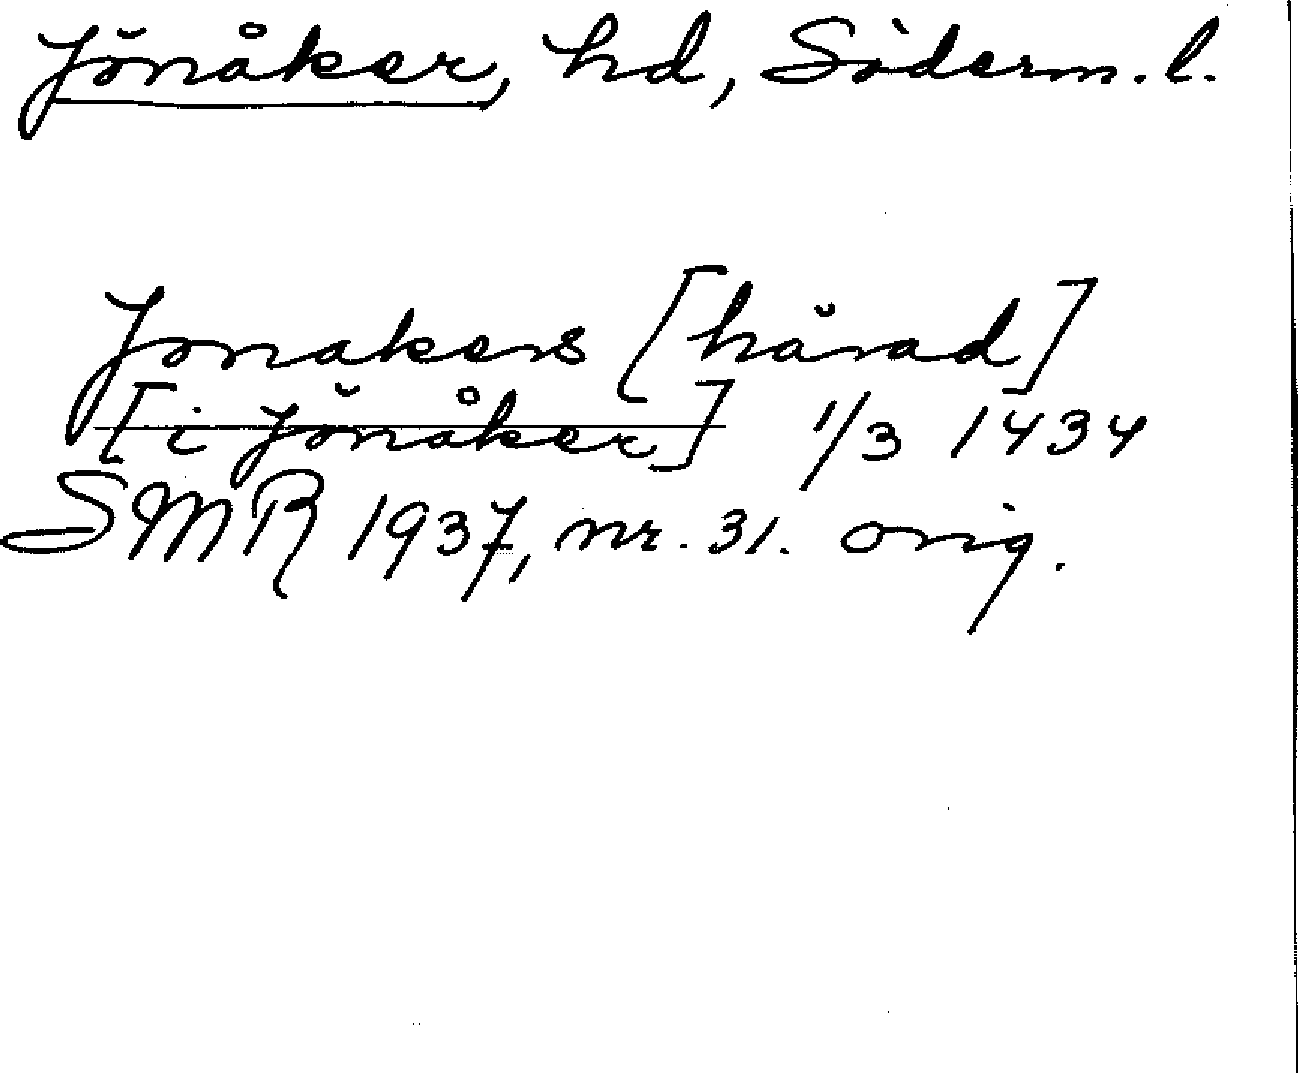 Jönåker, hd, Söderm. l.
Jonakers [härad]
[i Jönåker] 1/3 1434
SMR 1937, nr. 31. orig.